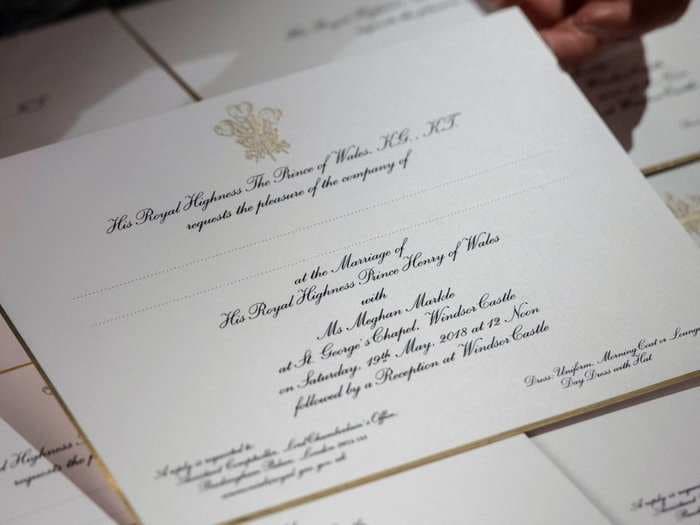 His Royal Highness The Prince of Wales, K.G., K.T.
requests the pleasure of the company of
at the Marriage of
His Royal Highness Prince Henry of Wales
with
Ms Meghan Markle
at St. George's Chapel, Windsor Castle
on Saturday, 19th May, 2018 at 12 Noon
followed by a Reception at Windsor Castle
Dress: Uniform, Morning Coat or Lounge
Day Dress with Hat
A reply is requested to:
Lord Chamberlain's Office,
Buckingham Palace, London
Highness
the p
A reply is requested